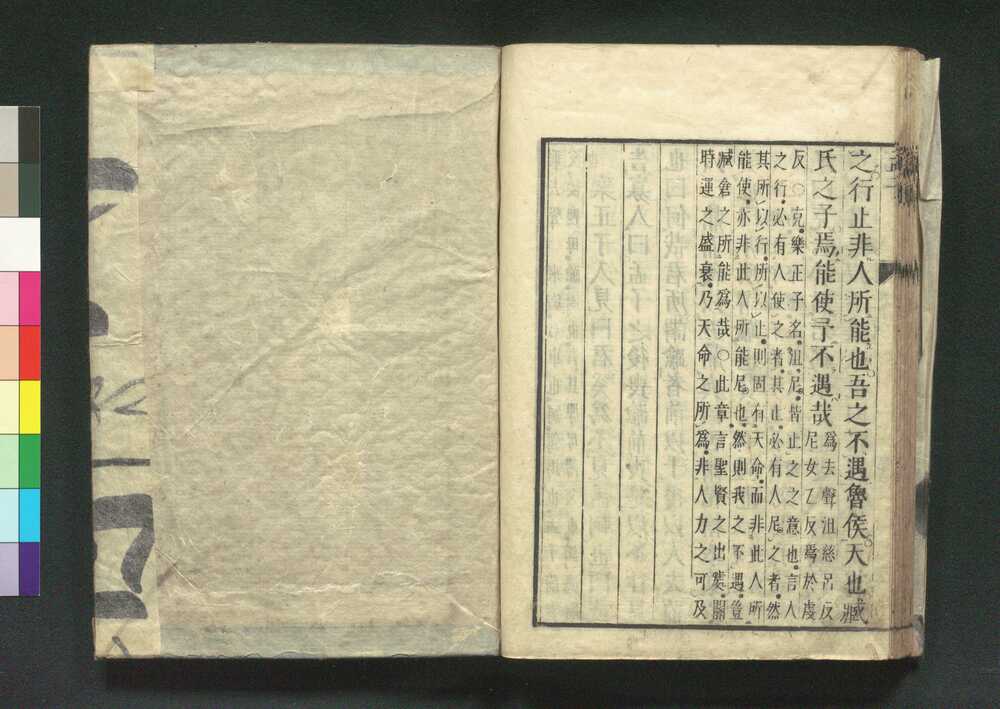 之行止非人所能也吾之不遇魯侯天也臧
氏之子焉能使予不遇哉
爲去聲沮慈呂反
尼女乙反焉於虔
反○克樂正子名沮尼皆止之之意也言人
之行必有人使之者其止必有人尼之者然
其所以行所以止則固有天命而非此人所
能使亦非此人所能尼也然則我之不遇豈
臧倉之所能爲哉○此章言聖賢之出處關
時運之盛衰乃天命之所爲非人力之可及